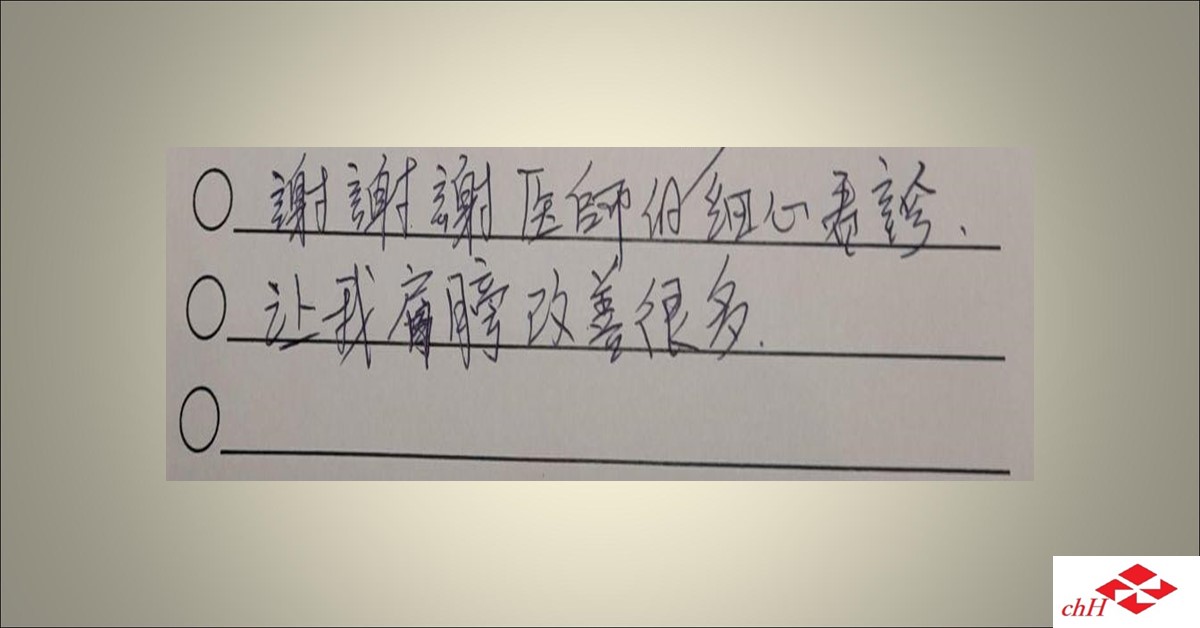 謝謝謝医師的細心看診.
让我肩膀改善很多.
chH